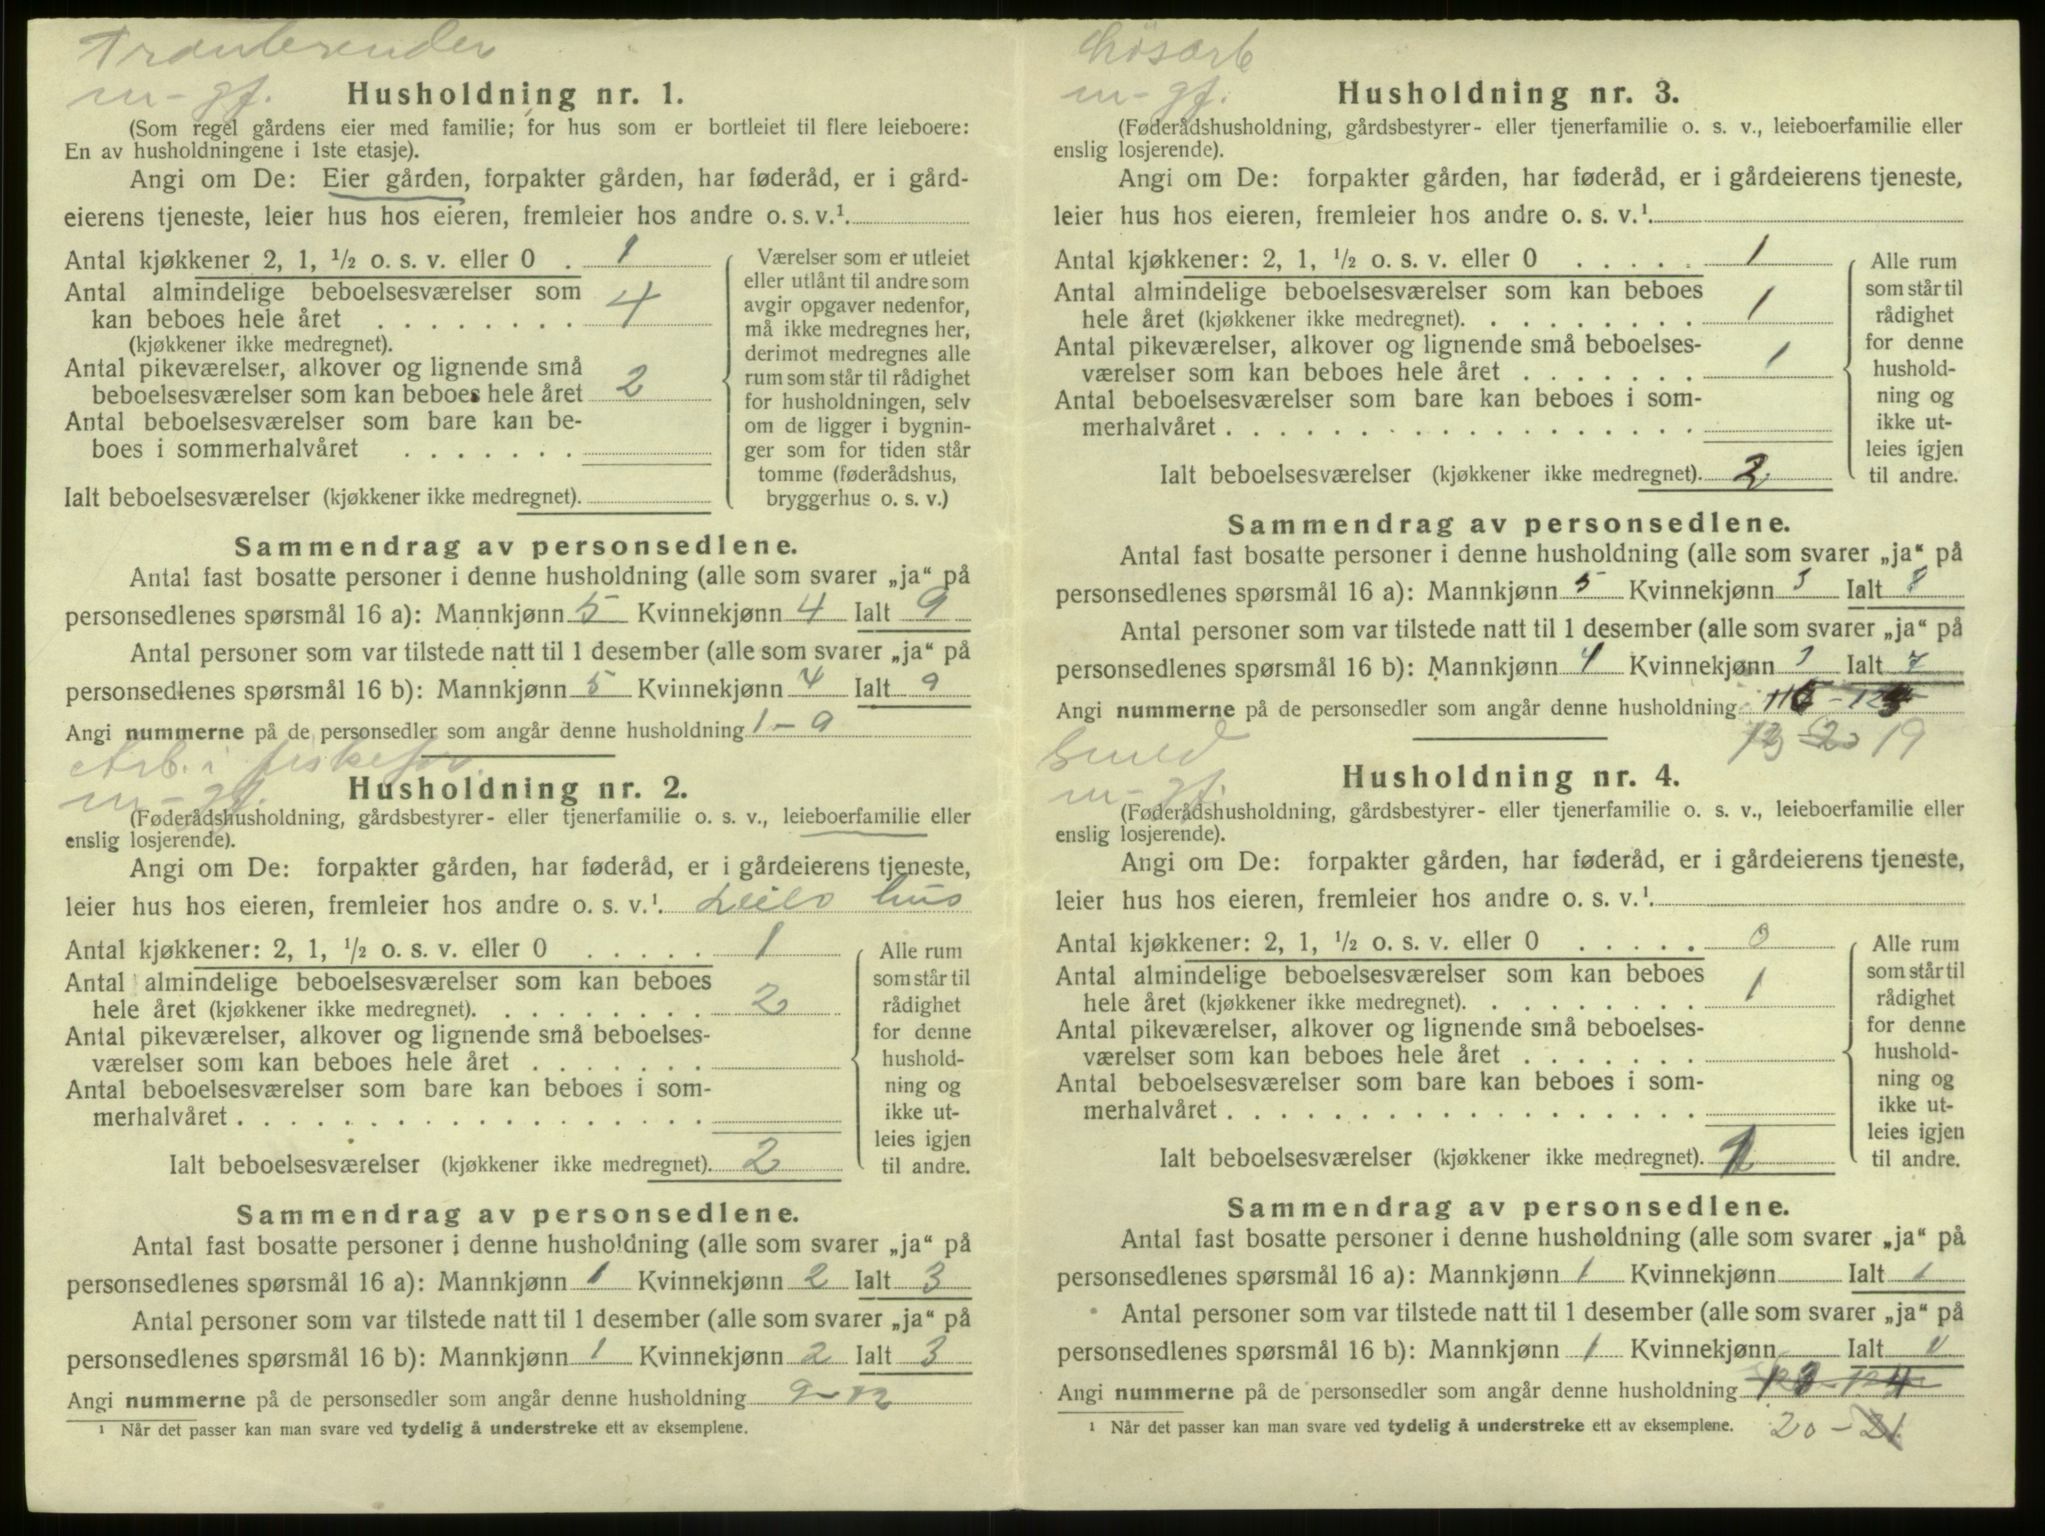 m-gf.
Husholdning nr. 1.
(Som regel gårdens eier med familie; for hus som er bortleiet til flere leieboere:
En av husholdningene i 1ste etasje).
Angi om De: Eier gården, forpakter gården, har føderåd, er i gård-
eierens tjeneste, leier hus hos eieren, fremleier hos andre o. s. v.¹.
Antal kjøkkener 2, 1, ½ o. s. v. eller 0 . 1
Antal almindelige beboelsesværelser som
kan beboes hele året . . . . . . . . 4
(kjøkkener ikke medregnet).
Antal pikeværelser, alkover og lignende små
beboelsesværelser som kan beboes hele året 2
Antal beboelsesværelser som bare kan be-
boes i sommerhalvåret . . . . . . .
Ialt beboelsesværelser (kjøkkener ikke medregnet).
Værelser som er utleiet
eller utlånt til andre som
avgir opgaver nedenfor,
må ikke medregnes her,
derimot medregnes alle
rum som står til rådighet
for husholdningen, selv
om de ligger i bygnin-
ger som for tiden står
tomme (føderådshus,
bryggerhus o. s. v.)
Sammendrag av personsedlene.
Antal fast bosatte personer i denne husholdning (alle som svarer „ja“ på
personsedlenes spørsmål 16 a): Mannkjønn 5 Kvinnekjønn 4 Ialt 9
Antal personer som var tilstede natt til 1 desember (alle som svarer „ja“ på
personsedlenes spørsmål 16 b): Mannkjønn 5 Kvinnekjønn 4 Ialt 9
Angi nummerne på de personsedler som angår denne husholdning 1-9
Arb. i
m-gf.
Husholdning nr. 2.
(Føderådshusholdning, gårdsbestyrer- eller tjenerfamilie o. s. v., leieboerfamilie eller
enslig losjerende).
Angi om De: forpakter gården, har føderåd, er i gårdeierens tjeneste,
leier hus hos eieren, fremleier hos andre o. s. v.¹. Leier hus
Antal kjøkkener: 2, 1, ½ o. s. v. eller 0 . . . . . 1
Antal almindelige beboelsesværelser som kan beboes
hele året (kjøkkener ikke medregnet). . . . . . . . . 2
Antal pikeværelser, alkover og lignende små beboelses-
værelser som kan beboes hele året . . . . . . .
Antal beboelsesværelser som bare kan beboes i som-
merhalvåret . . . . . . . . . . . . . . . . . .
Ialt beboelsesværelser (kjøkkener ikke medregnet). 2
Alle rum
som står til
rådighet
for denne
hushold-
ning og
ikke ut-
leies igjen
til andre.
Sammendrag av personsedlene.
Antal fast bosatte personer i denne husholdning (alle som svarer „ja“ på
personsedlenes spørsmål 16 a): Mannkjønn 1 Kvinnekjønn 2 Ialt 3
Antal personer som var tilstede natt til 1 desember (alle som svarer „ja“ på
personsedlenes spørsmål 16 b): Mannkjønn 1 Kvinnekjønn 2 Ialt 3
Angi nummerne på de personsedler som angår denne husholdning 9-12
¹ Når det passer kan man svare ved tydelig å understreke ett av eksemplene.
m-gf.
Husholdning nr. 3.
(Føderådshusholdning, gårdsbestyrer- eller tjenerfamilie o. s. v., leieboerfamilie eller
enslig losjerende).
Angi om De: forpakter gården, har føderåd, er i gårdeierens tjeneste,
leier hus hos eieren, fremleier hos andre o. s. v.¹.
Antal kjøkkener: 2, 1, ½ o. s. v. eller 0 . . . . . 1
Antal almindelige beboelsesværelser som kan beboes
hele året (kjøkkener ikke medregnet). . . . . . . . . 1
Antal pikeværelser, alkover og lignende små beboelses-
værelser som kan beboes hele året . . . . . . . 1
Antal beboelsesværelser som bare kan beboes i som-
merhalvåret . . . . . . . . . . . . . . . . . .
Ialt beboelsesværelser (kjøkkener ikke medregnet). 2
Alle rum
som står til
rådighet
for denne
hushold-
ning og
ikke ut-
leies igjen
til andre.
Sammendrag av personsedlene.
Antal fast bosatte personer i denne husholdning (alle som svarer „ja“ på
personsedlenes spørsmål 16 a): Mannkjønn 5 Kvinnekjønn 3 Ialt 8
Antal personer som var tilstede natt til 1 desember (alle som svarer „ja“ på
personsedlenes spørsmål 16 b): Mannkjønn 4 Kvinnekjønn 3 Ialt 7
Angi nummerne på de personsedler som angår denne husholdning
19
Smed
m-gf.
Husholdning nr. 4.
(Føderådshusholdning, gårdsbestyrer- eller tjenerfamilie o. s. v., leieboerfamilie eller
enslig losjerende).
Angi om De: forpakter gården, har føderåd, er i gårdeierens tjeneste,
leier hus hos eieren, fremleier hos andre o. s. v.¹.
Antal kjøkkener: 2, 1, ½ o. s. v. eller 0 . . . . . 0
Antal almindelige beboelsesværelser som kan beboes
hele året (kjøkkener ikke medregnet). . . . . . . . . 1
Antal pikeværelser, alkover og lignende små beboelses-
værelser som kan beboes hele året . . . . . . .
Antal beboelsesværelser som bare kan beboes i som-
merhalvåret . . . . . . . . . . . . . . . . . .
Ialt beboelsesværelser (kjøkkener ikke medregnet). 1
Alle rum
som står til
rådighet
for denne
hushold-
ning og
ikke ut-
leies igjen
til andre.
Sammendrag av personsedlene.
Antal fast bosatte personer i denne husholdning (alle som svarer „ja“ på
personsedlenes spørsmål 16 a): Mannkjønn 1 Kvinnekjønn Ialt 1
Antal personer som var tilstede natt til 1 desember (alle som svarer „ja“ på
personsedlenes spørsmål 16 b): Mannkjønn 1 Kvinnekjønn Ialt 1
Angi nummerne på de personsedler som angår denne husholdning
¹ Når det passer kan man svare ved tydelig å understreke ett av eksemplene. 20-21